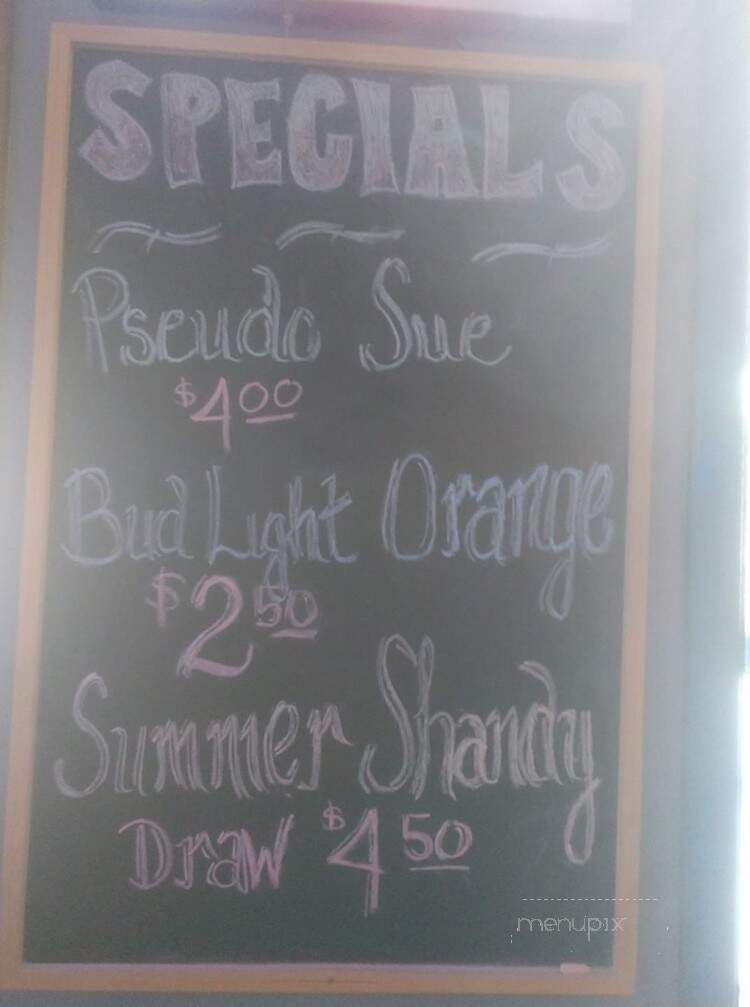 SPECIALS
Pseudo Sue
$4.00
Bud Light Orange
$2.50
Summer Shandy
Draw $4.50
menupix